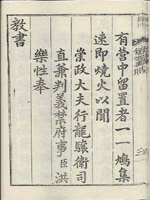 有營中留置者一一鳩集
速即燒火以聞
崇政大夫行龍驤衛司
直兼判義禁府事臣洪
樂性奉
教書